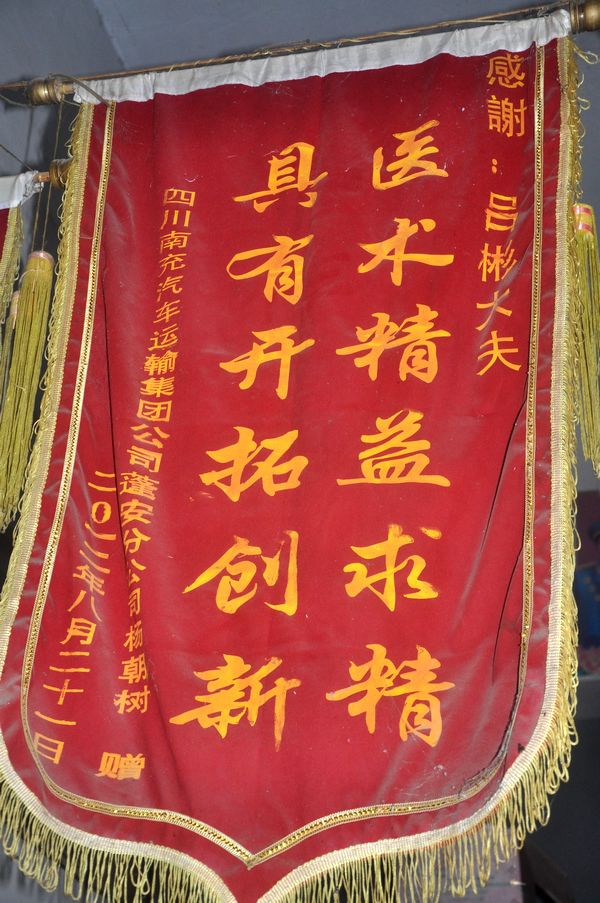 感謝：吕彬大夫
医术精益求精
具有开拓创新
四川南充汽车运输集团公司蓬安分公司杨朝树 赠
二〇一二年八月二十一日